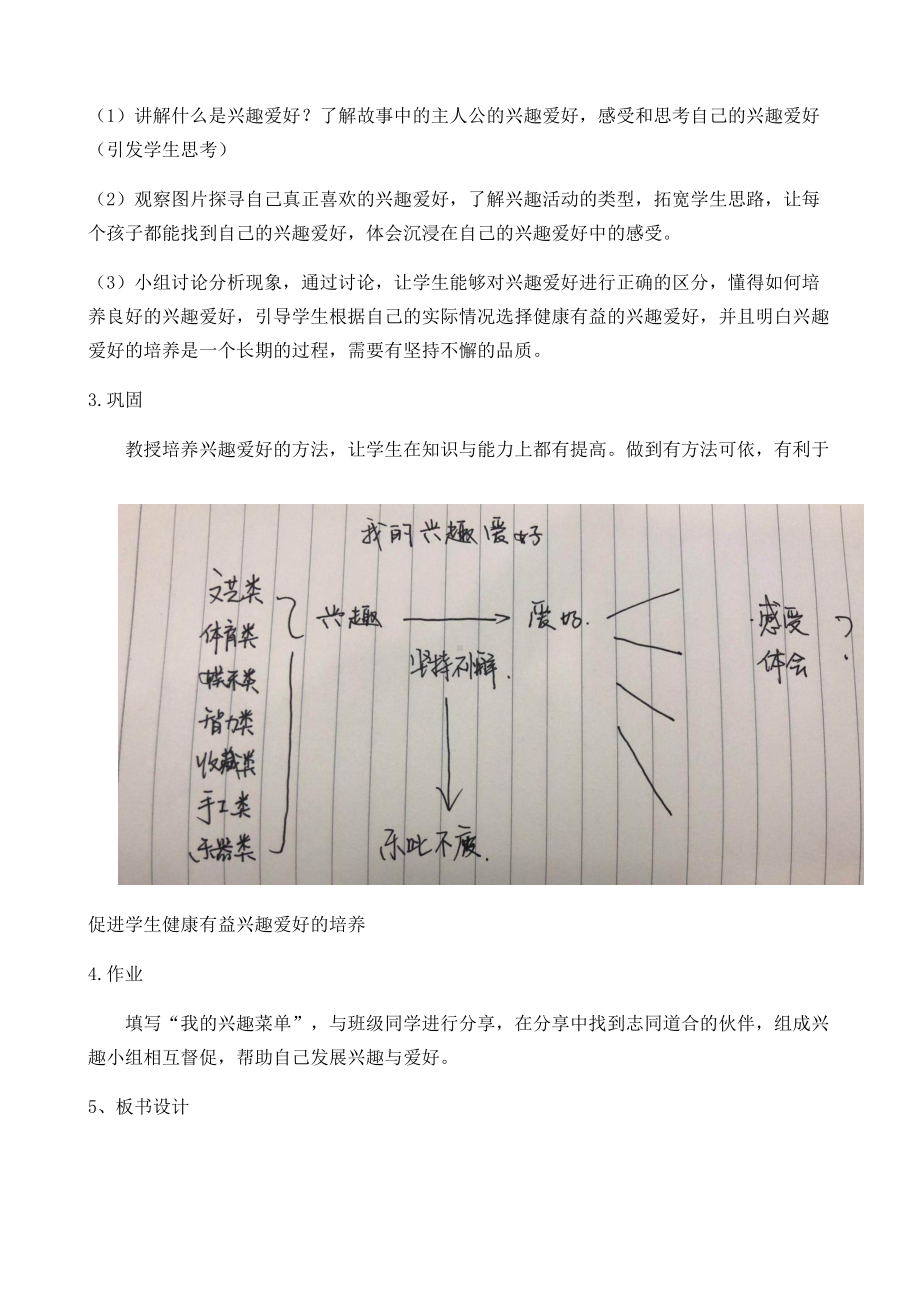 （1）讲解什么是兴趣爱好？了解故事中的主人公的兴趣爱好，感受和思考自己的兴趣爱好
（引发学生思考）
（2）观察图片探寻自己真正喜欢的兴趣爱好，了解兴趣活动的类型，拓宽学生思路，让每
个孩子都能找到自己的兴趣爱好，体会沉浸在自己的兴趣爱好中的感受。
（3）小组讨论分析现象，通过讨论，让学生能够对兴趣爱好进行正确的区分，懂得如何培
养良好的兴趣爱好，引导学生根据自己的实际情况选择健康有益的兴趣爱好，并且明白兴趣
爱好的培养是一个长期的过程，需要有坚持不懈的品质。
3.巩固
教授培养兴趣爱好的方法，让学生在知识与能力上都有提高。做到有方法可依，有利于
我的兴趣爱好
文艺类
体育类
智力类
收藏类
手工类
乐器类
兴趣
坚持不懈.
乐此不疲.
爱好.
感受
体会
?
促进学生健康有益兴趣爱好的培养
4.作业
填写“我的兴趣菜单”，与班级同学进行分享，在分享中找到志同道合的伙伴，组成兴
趣小组相互督促，帮助自己发展兴趣与爱好。
5、板书设计